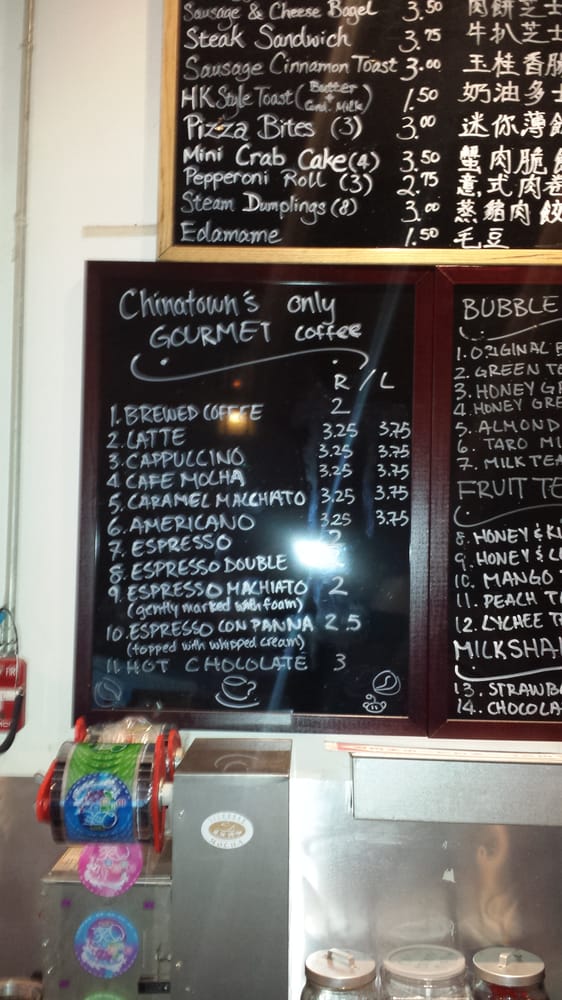 Sausage & Cheese Bagel 3.50 肉餅芝士
Steak Sandwich 3.75 牛扒芝士
Sausage Cinnamon Toast 3.00 玉桂香腸
HK Style Toast (Butter + Cond. Milk) 1.50 奶油多士
Pizza Bites (3) 3.00 迷你薄餅
Mini Crab Cake (4) 3.50 蟹肉脆餅
Pepperoni Roll (3) 2.75 意式肉卷
Steam Dumplings (8) 3.00 蒸豬肉餃
Edamame 1.50 毛豆
Chinatown's only
GOURMET coffee
R / L
1. BREWED COFFEE 2
2. LATTE 3.25 3.75
3. CAPPUCCINO 3.25 3.75
4. CAFE MOCHA 3.25 3.75
5. CARAMEL MACCHIATO 3.25 3.75
6. AMERICANO 3.25 3.75
7. ESPRESSO 2
8. ESPRESSO DOUBLE
9. ESPRESSO MACHIATO 2
(gently marked with foam)
10. ESPRESSO CON PANNA 2.5
(topped with whipped cream)
11. HOT CHOCOLATE 3
BUBBLE
1. ORIGINAL
2. GREEN
3. HONEY
4. HONEY
5. ALMOND
6. TARO
7. MILK TEA
FRUIT
8. HONEY &
9. HONEY &
10. MANGO
11. PEACH
12. LYCHEE
MILKSHA
13. STRAWB
14. CHOCOLA
MOCHA